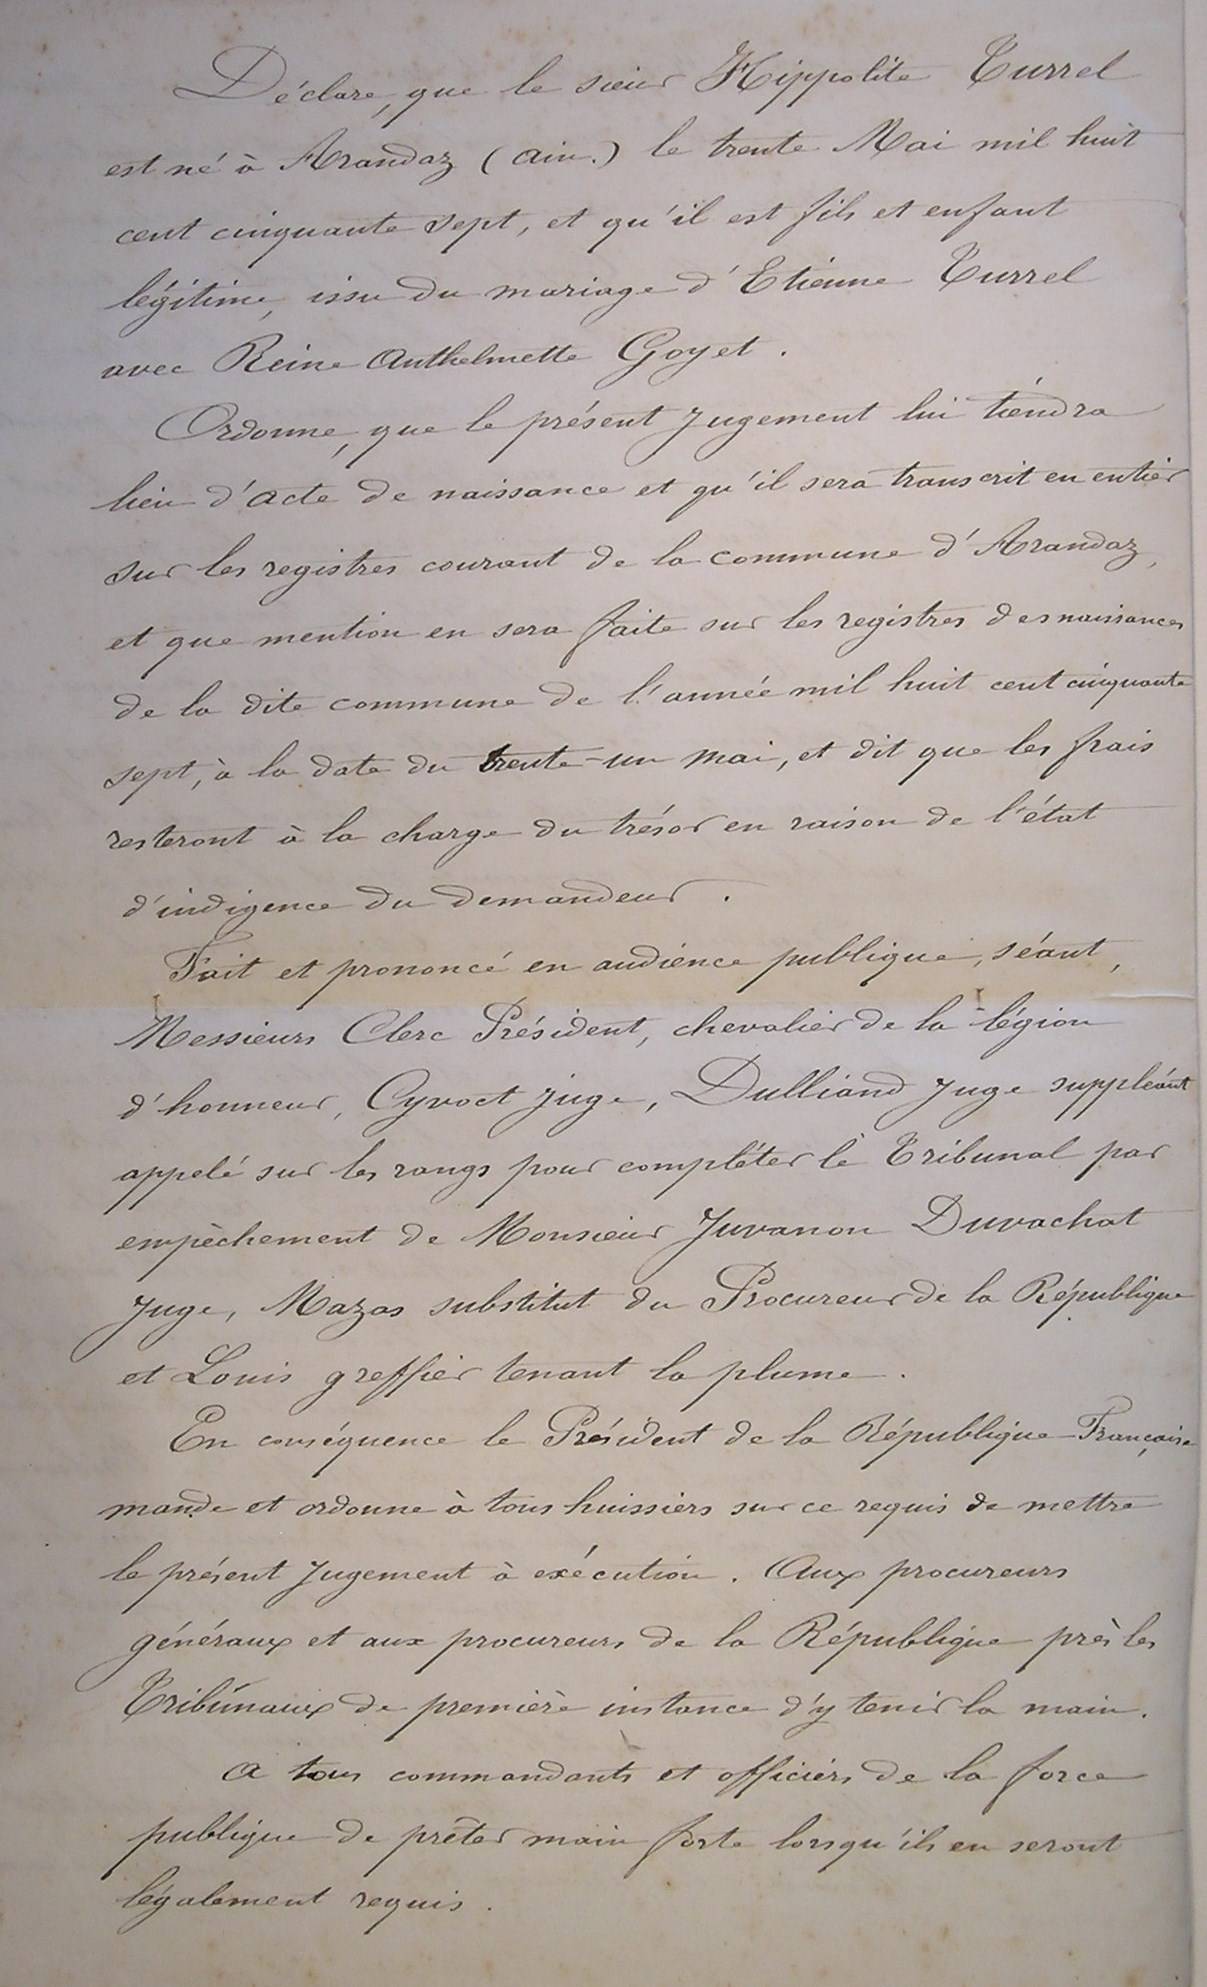 Déclare, que le sieur Hippolite Turrel
est né à Arandaz (Ain.) le trente Mai mil huit
cent cinquante sept, et qu'il est fils et enfant
légitime, issu du mariage d'Etienne Turrel
avec Reine Anthelmette Goyet.
Ordonne, que le présent Jugement lui tiendra
lieu d'acte de naissance et qu'il sera transcrit en entier
sur les registres courant de la commune d'Arandaz,
et que mention en sera faite sur les registres des naissances
de la dite commune de l'année mil huit cent cinquante
sept, à la date du trente-un mai, et dit que les frais
resteront à la charge du trésor en raison de l'état
d'indigence du demandeur.
Fait et prononcé en audience publique, séant,
Messieurs Clerc Président, chevalier de la légion
d'honneur, Cyvoct juge, Dulliand Juge suppléant
appelé sur les rangs pour compléter le Tribunal par
empèchement de Monsieur Juvanon Duvachat
Juge, Mazas substitut du Procureur de la République
et Louis greffier tenant la plume.
En conséquence le Président de la République Française
mande et ordonne à tous huissiers sur ce requis de mettre
le présent Jugement à exécution. Aux procureurs
généraux et aux procureurs de la République près les
Tribunaux de première instance d'y tenir la main.
A tous commandants et officiers de la force
publique de prêter main forte lorsqu'ils en seront
légalement requis.